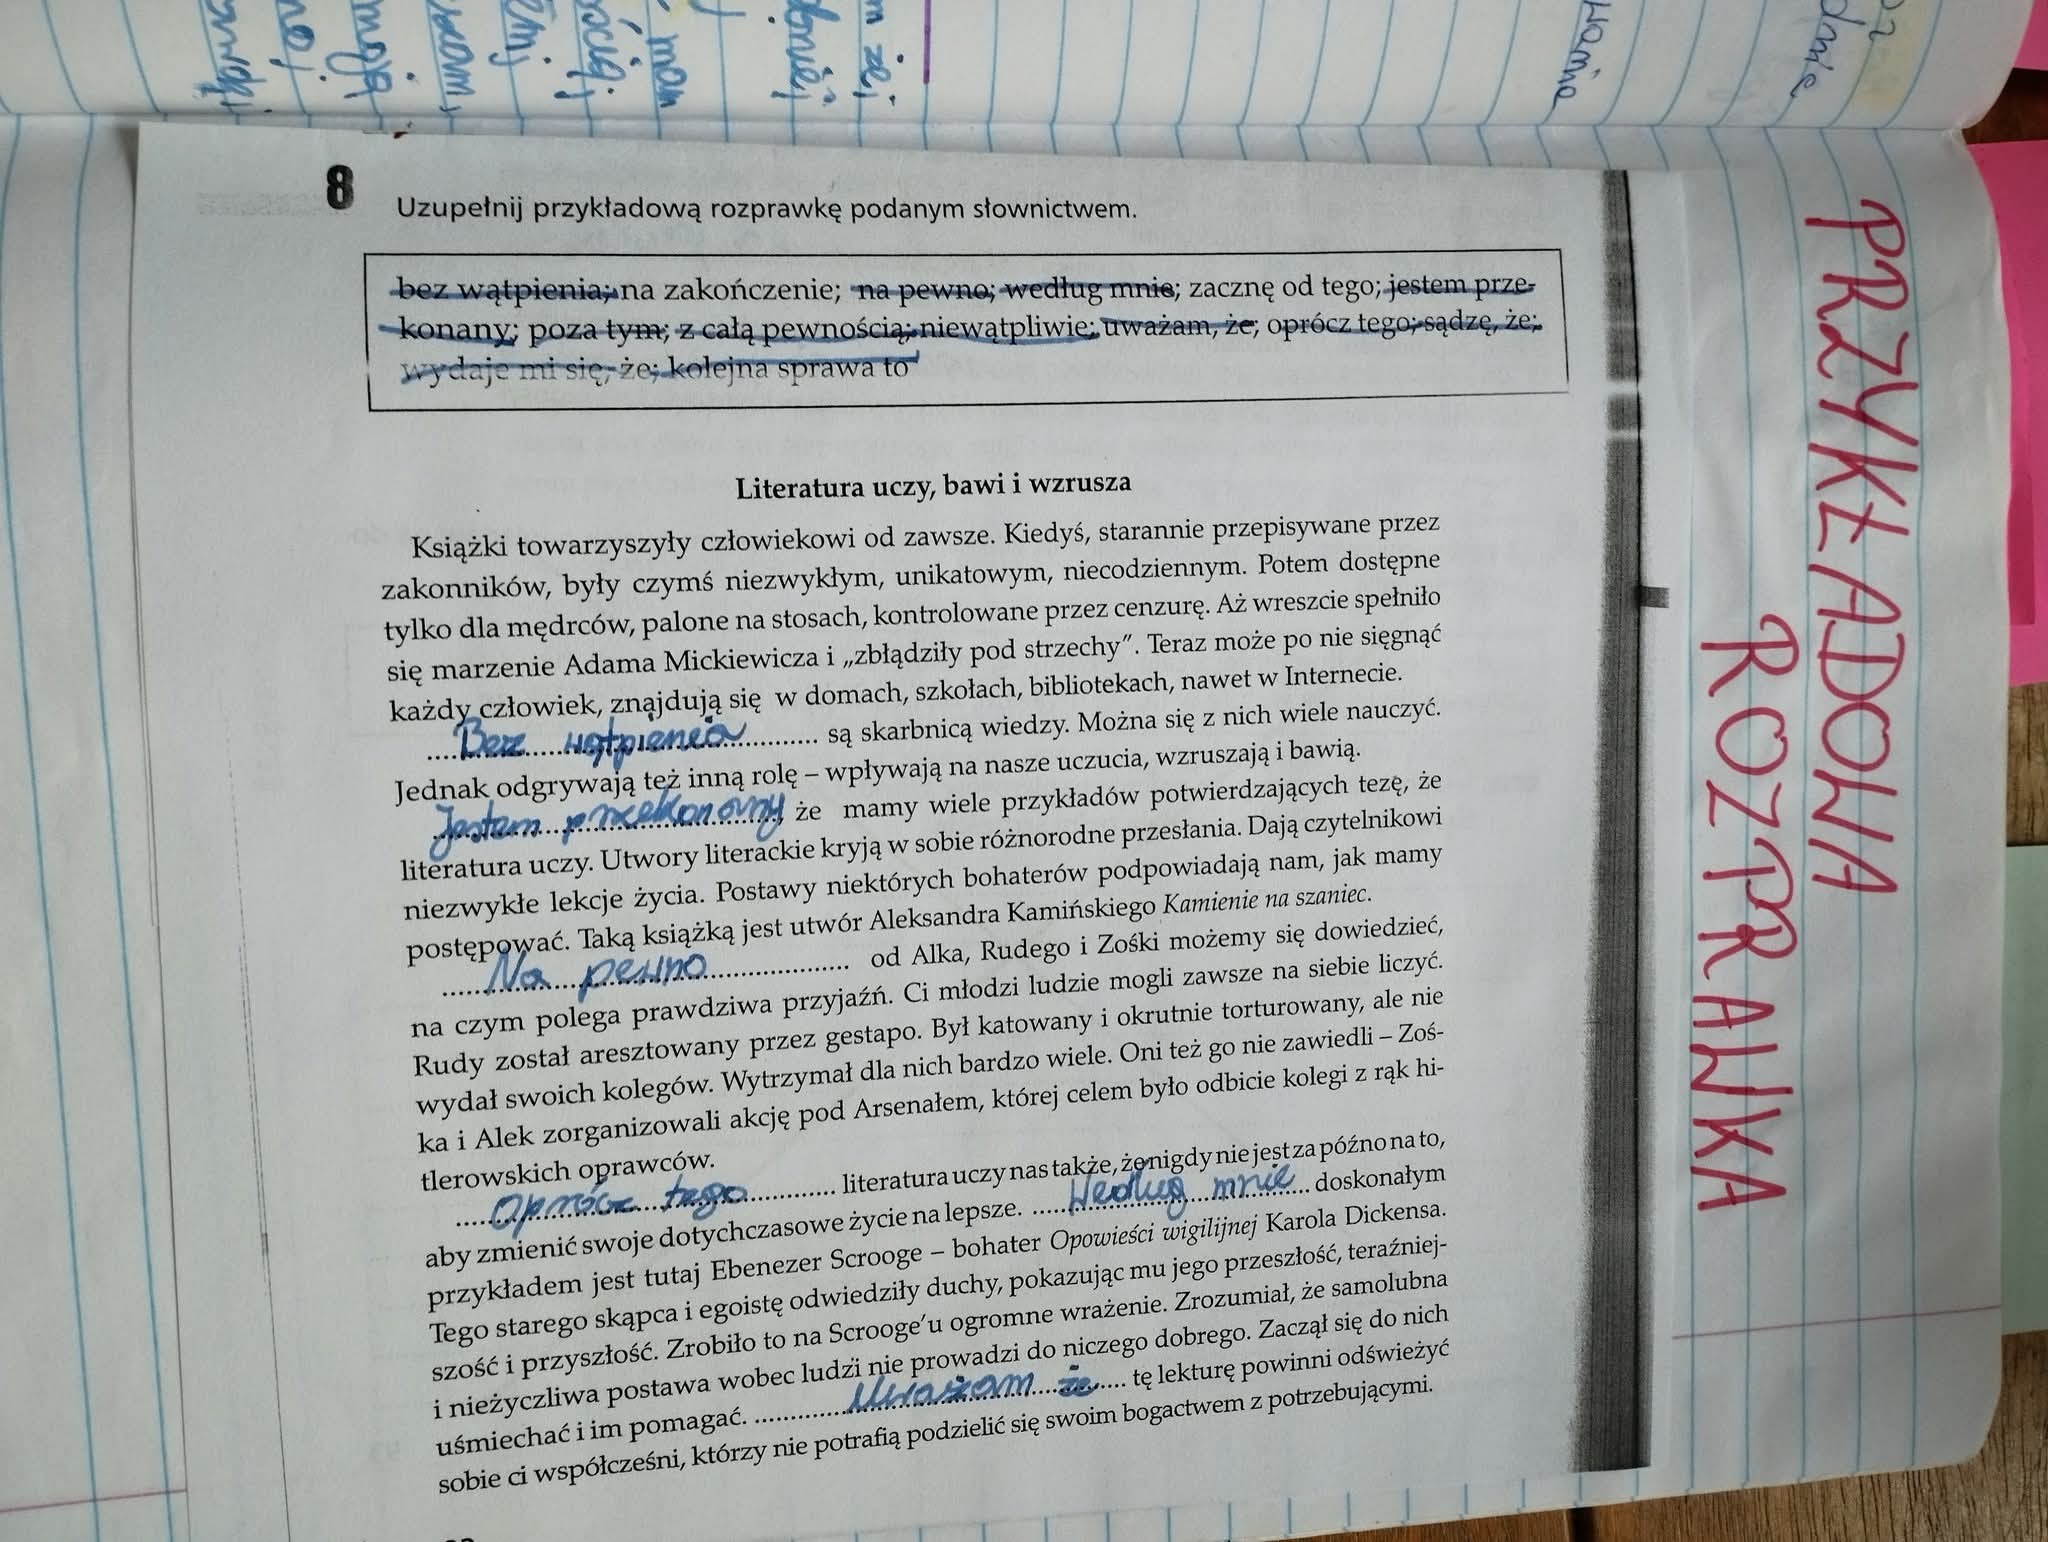 m żej
obniej
mam
ścią;
kam,
moją
nej
8
Uzupełnij przykładową rozprawkę podanym słownictwem.
bez wątpienia; na zakończenie; na pewno; według mnie; zacznę od tego; jestem prze-
konany; poza tym; z całą pewnością; niewątpliwie; uważam, że; oprócz tego; sądzę, że;
wydaje mi się, że; kolejna sprawa to
Literatura uczy, bawi i wzrusza
Książki towarzyszyły człowiekowi od zawsze. Kiedyś, starannie przepisywane przez
zakonników, były czymś niezwykłym, unikatowym, niecodziennym. Potem dostępne
tylko dla mędrców, palone na stosach, kontrolowane przez cenzurę. Aż wreszcie spełniło
się marzenie Adama Mickiewicza i „zbłądziły pod strzechy”. Teraz może po nie sięgnąć
każdy człowiek, znajdują się w domach, szkołach, bibliotekach, nawet w Internecie.
Bez wątpienia są skarbnicą wiedzy. Można się z nich wiele nauczyć.
Jednak odgrywają też inną rolę – wpływają na nasze uczucia, wzruszają i bawią.
Jestem przekonany, że mamy wiele przykładów potwierdzających tezę, że
literatura uczy. Utwory literackie kryją w sobie różnorodne przesłania. Dają czytelnikowi
niezwykłe lekcje życia. Postawy niektórych bohaterów podpowiadają nam, jak mamy
postępować. Taką książką jest utwór Aleksandra Kamińskiego Kamienie na szaniec.
Na pewno od Alka, Rudego i Zośki możemy się dowiedzieć,
na czym polega prawdziwa przyjaźń. Ci młodzi ludzie mogli zawsze na siebie liczyć.
Rudy został aresztowany przez gestapo. Był katowany i okrutnie torturowany, ale nie
wydał swoich kolegów. Wytrzymał dla nich bardzo wiele. Oni też go nie zawiedli – Zoś-
ka i Alek zorganizowali akcję pod Arsenałem, której celem było odbicie kolegi z rąk hi-
tlerowskich oprawców.
Oprócz tego literatura uczy nas także, że nigdy nie jest za późno na to,
aby zmienić swoje dotychczasowe życie na lepsze. Według mnie doskonałym
przykładem jest tutaj Ebenezer Scrooge – bohater Opowieści wigilijnej Karola Dickensa.
Tego starego skąpca i egoistę odwiedziły duchy, pokazując mu jego przeszłość, teraźniej-
szość i przyszłość. Zrobiło to na Scrooge’u ogromne wrażenie. Zrozumiał, że samolubna
i nieżyczliwa postawa wobec ludzi nie prowadzi do niczego dobrego. Zaczął się do nich
uśmiechać i im pomagać. Uważam że tę lekturę powinni odświeżyć
sobie ci współcześni, którzy nie potrafią podzielić się swoim bogactwem z potrzebującymi.
PRZYKŁADOWA
ROZPRAWKA